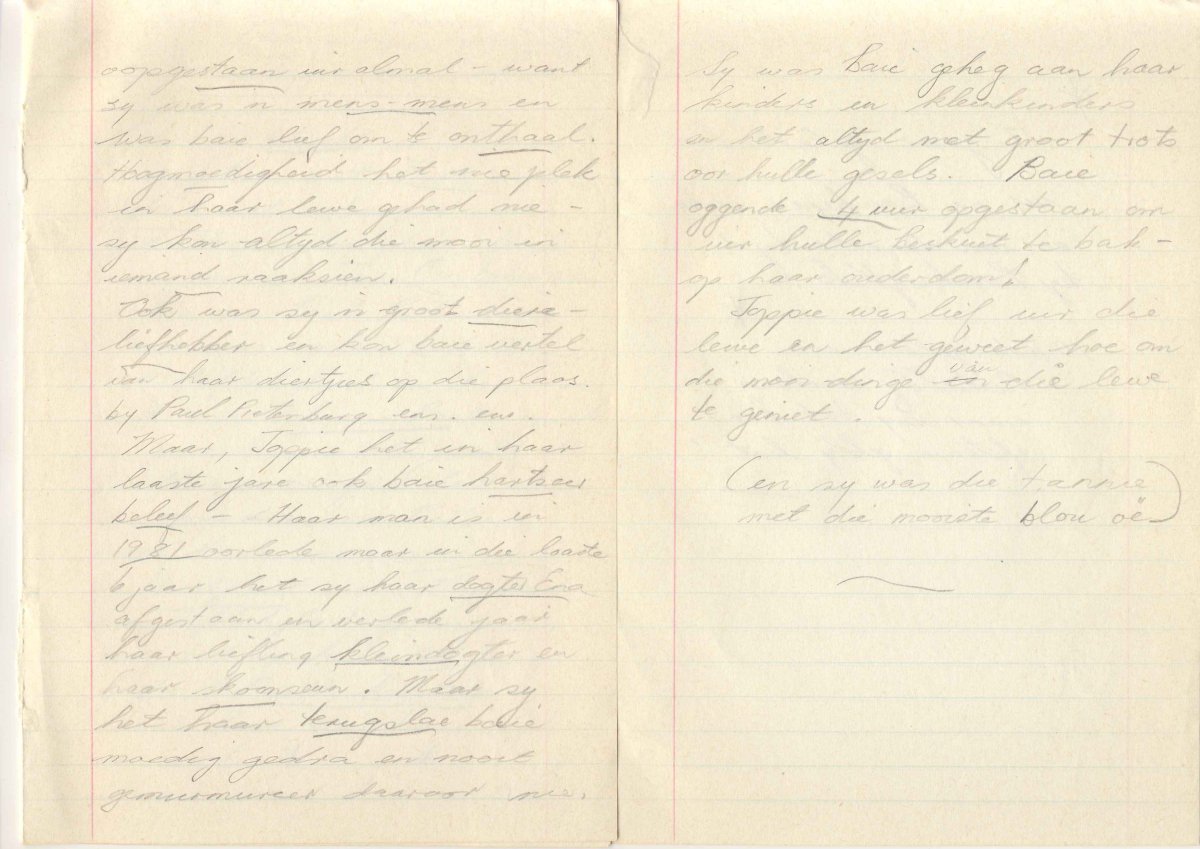 oopgestaan vir almal – want
sy was 'n mens-mens en
was baie lief om te onthaal.
Hoogmoedigheid het nie plek
in haar lewe gehad nie –
sy kon altyd die mooi in
iemand raaksien.
Ook was sy 'n groot diere-
liefhebber en kon baie vertel
van haar diertjies op die plaas.
by Paul Pieterburg ens. ens.
Maar, Joppie het in haar
laaste jare ook baie hartseer
beleef – Haar man is in
1981 oorlede maar in die laaste
6 jaar het sy haar dogter Ena
afgestaan en verlede jaar
haar liefling kleindogter en
haar skoonseun. Maar sy
het haar terugslae baie
moedig gedra en nooit
gemurmureer daaroor nie.
Sy was baie geheg aan haar
kinders en kleinkinders
en het altyd met groot trots
oor hulle gesels. Baie
oggende 4 uur opgestaan om
vir hulle beskuit te bak –
op haar ouderdom!
Joppie was lief vir die
lewe en het geweet hoe om
die mooi dinge van die lewe
te geniet.
(en sy was die tannie
met die mooiste blou oë)